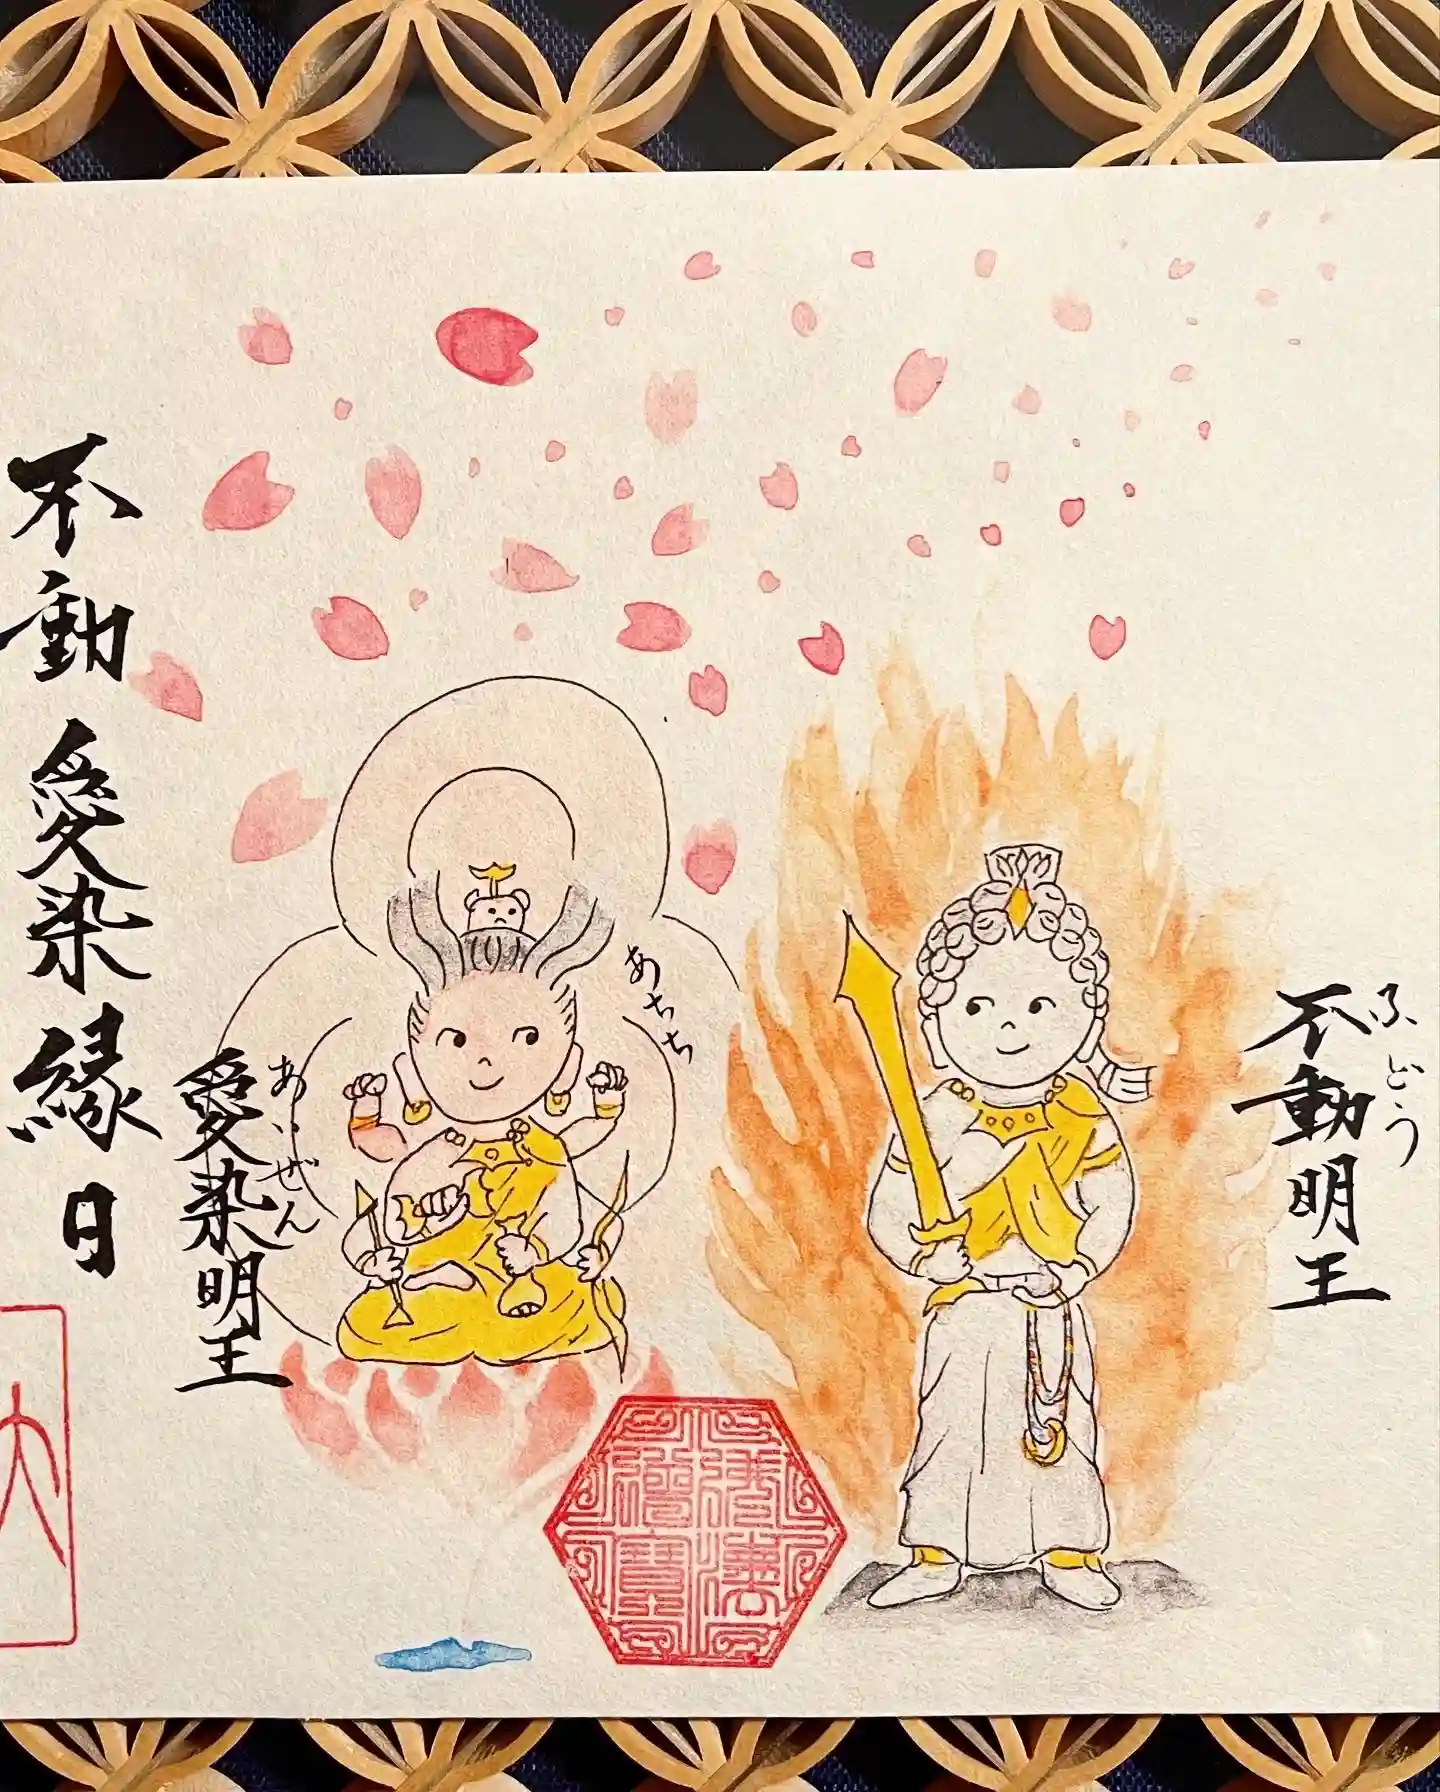 不動明王
ふどう
あちち
愛染明王
あいぜん
不動愛染縁日